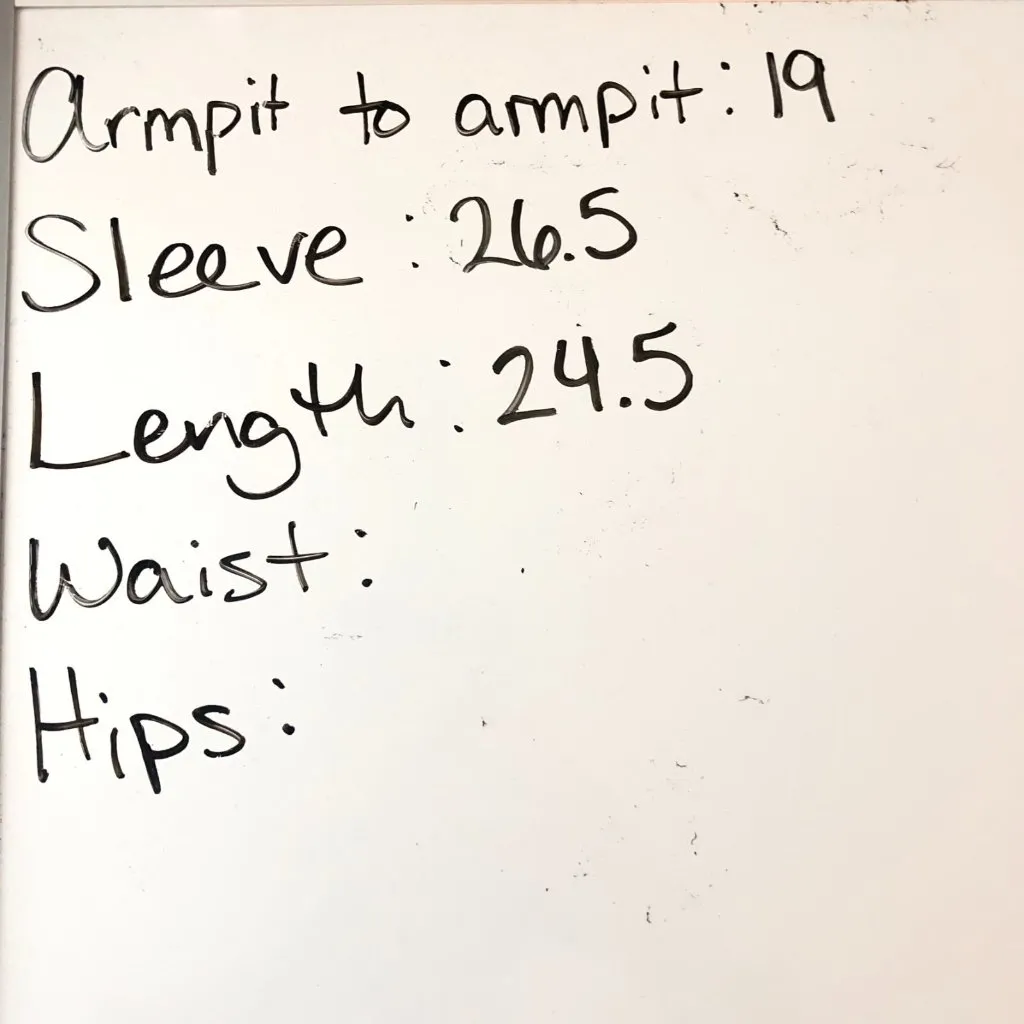 Armpit to armpit: 19
Sleeve: 26.5
Length: 24.5
Waist:
Hips: